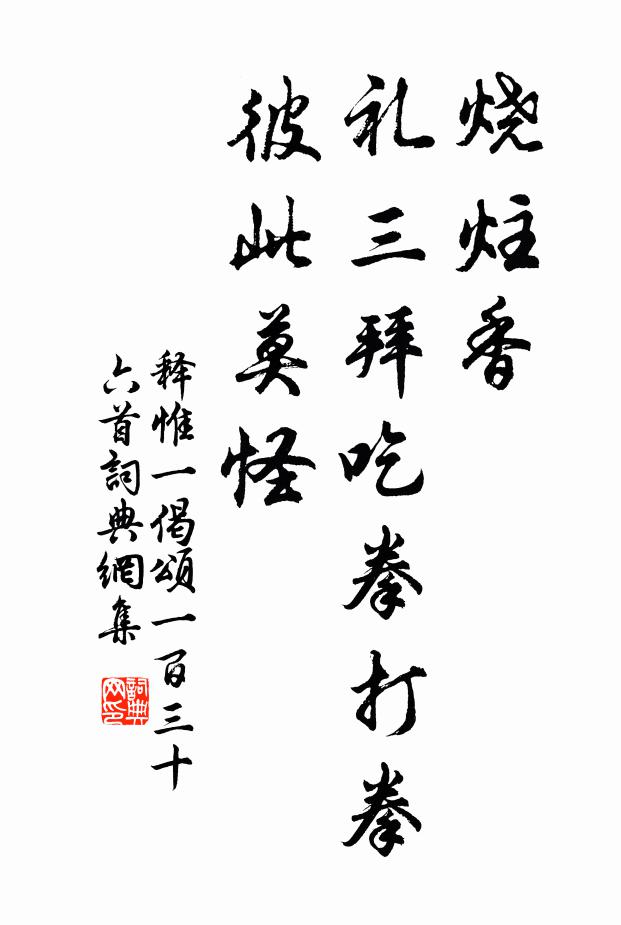 烧炷香
礼三拜吃拳打拳
彼此莫怪
释惟一偈颂一百三十
六首詞典網集
詞典
网印